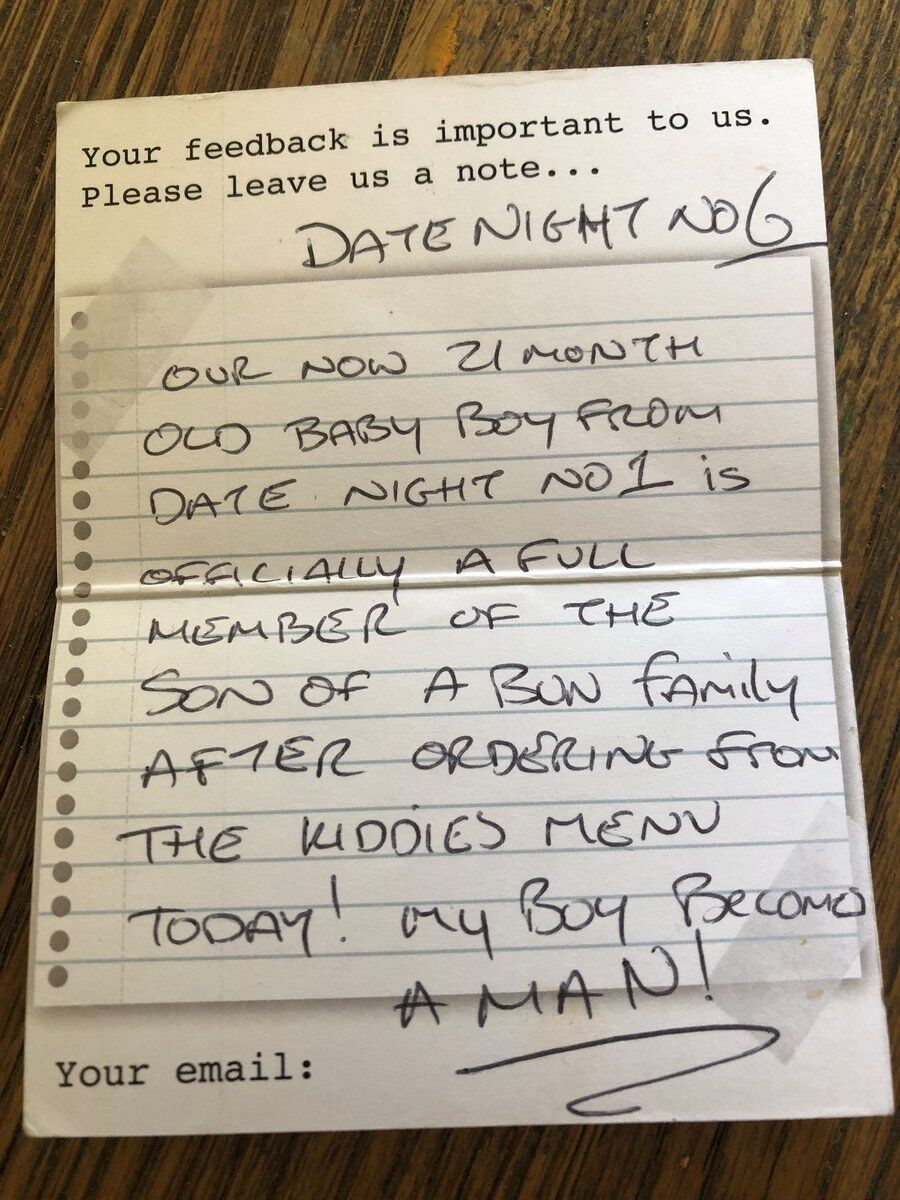 Your feedback is important to us.
Please leave us a note...
DATE NIGHT NO6
OUR NOW 21 MONTH
OLD BABY BOY FROM
DATE NIGHT NO1 is
OFFICIALLY A FULL
MEMBER OF THE
SON OF A BUN FAMily
AFTER ORDERING FROM
THE KIDDIES MENU
TODAY! MY BOY BECOMES
A MAN!
Your email: